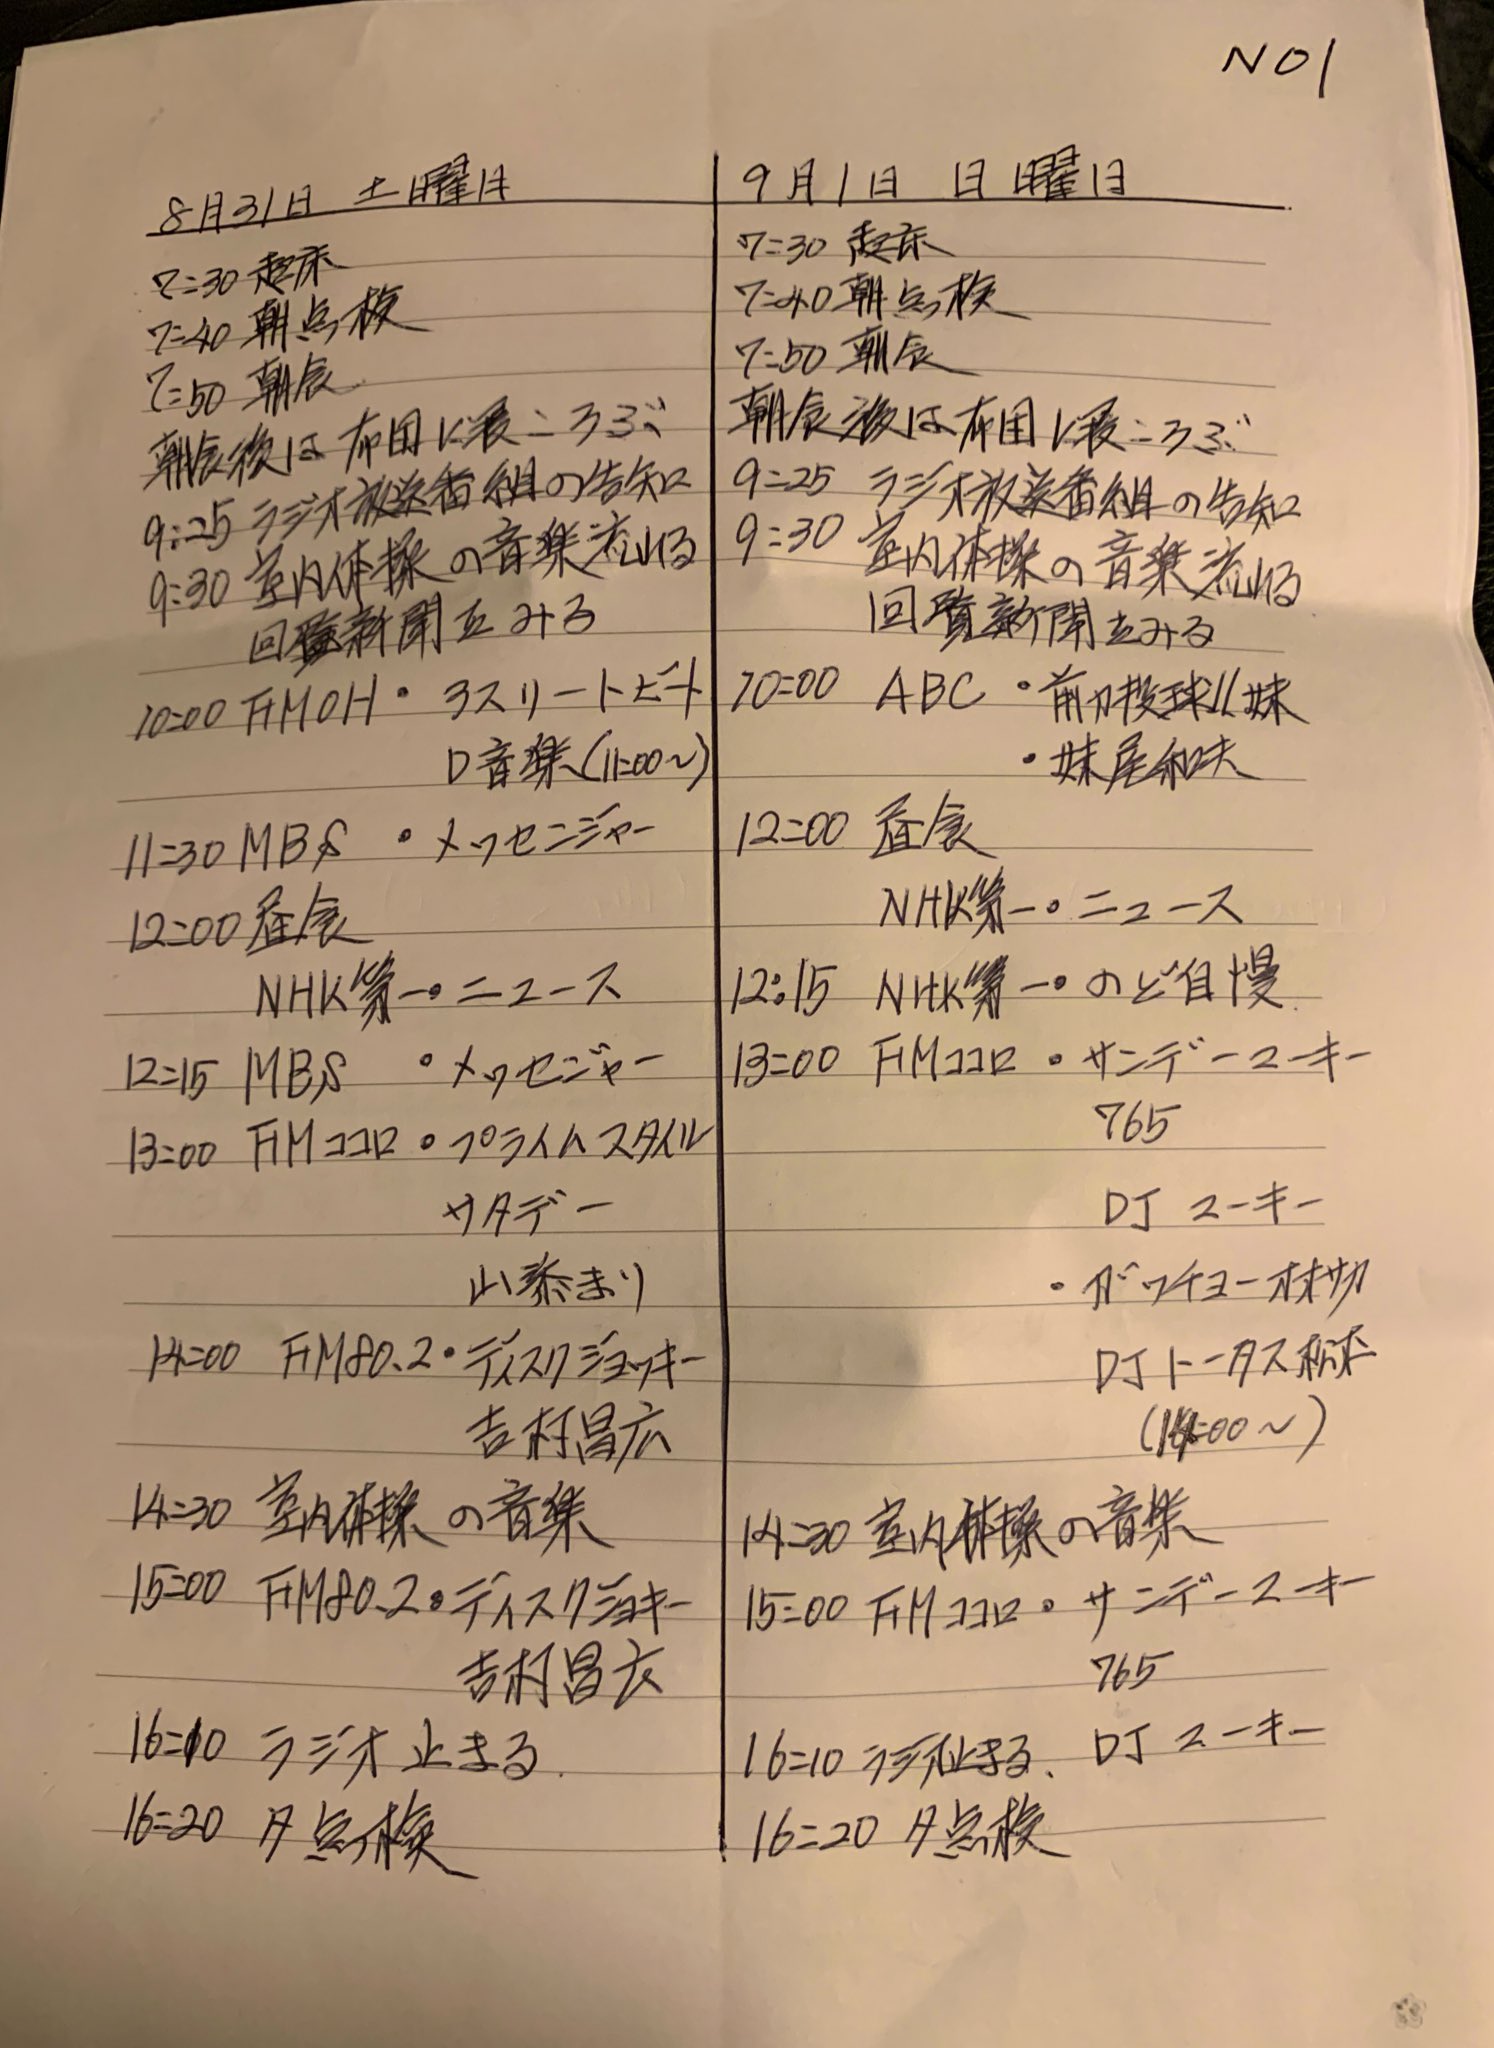 NO1
8月31日 土曜日
7:30 起床
7:40 朝点検
7:50 朝食
朝食後は布団に寝ころぶ
9:25 ラジオ放送番組の告知
9:30 室内体操の音楽流れる
回覧新聞をみる
10:00 FMOH・3スリートビート
D音楽(11:00～)
11:30 MBS ・メッセンジャー
12:00 昼食
NHK第一・ニュース
12:15 MBS ・メッセジャー
13:00 FMココロ・プライムスタイル
サタデー
山添まり
14:00 FM80.2・ディスクジョッキー
吉村昌広
14:30 室内体操の音楽
15:00 FM80.2・ディスクジョキー
吉村昌広
16:10 ラジオ止まる.
16:20 夕点検
9月1日 日曜日
7:30 起床
7:40 朝点検
7:50 朝食
朝食後は布団に寝ころぶ
9:25 ラジオ放送番組の告知
9:30 室内体操の音楽流れる
回覧新聞をみる
10:00 ABC ・前力投球!!妹
・妹尾和夫
12:00 昼食
NHK第一・ニュース
12:15 NHK第一・のど自慢
13:00 FMココロ・サンデーユーキー
765
DJ ユーキー
・ガッチョーオオサカ
DJトータス松本
(14:00～)
14:30 室内体操の音楽
15:00 FMココロ・サンデーユーキー
765
16:10 ラジオ止まる、 DJ ユーキー
16:20 夕点検